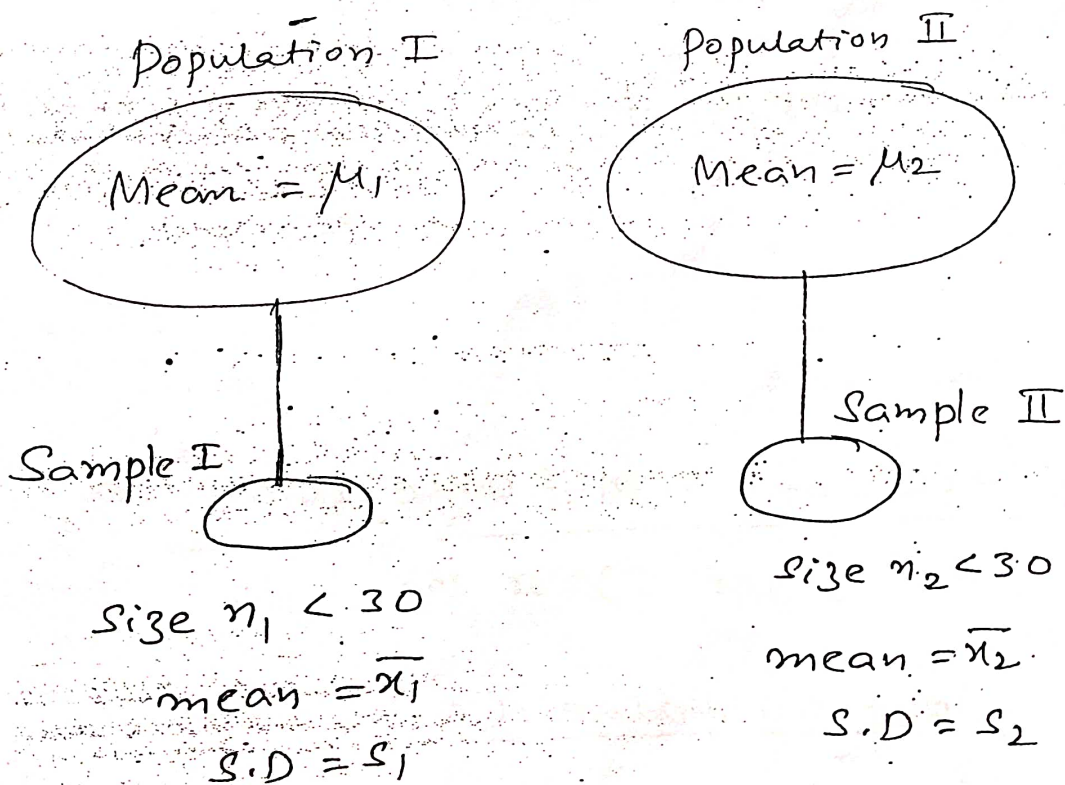 Population I
Mean = μ₁
Sample I
Size n₁ < 30
mean = x̄₁
S.D = S₁
Population II
Mean = μ₂
Sample II
Size n₂ < 30
mean = x̄₂
S.D = S₂